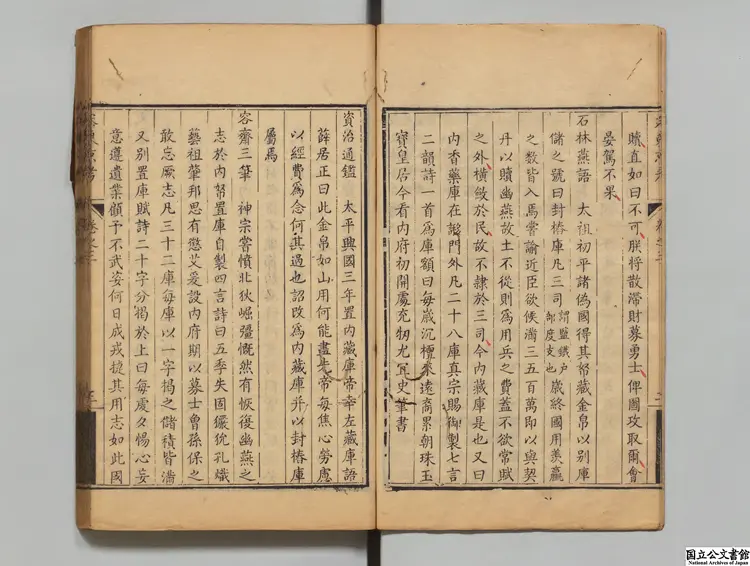 贖直如曰不可朕將散滯財募勇士俾圖攻取爾會
晏駕不果
石林燕語 太祖初平諸偽國得其帑藏金帛以别庫
儲之號曰封樁庫凡三司謂鹽鐵戶部度支也歳終國用羡贏
之數皆入焉嘗諭近臣欲俟滿三五百萬即以與契
丹以贖幽燕故土不從則為用兵之費蓋不欲常賦
之外横斂於民故不隷於三司今内藏庫是也又曰
内香藥庫在門外凡二十八庫真宗賜御製七言
二韻詩一首為庫額曰每歳沉檀來遠裔累朝珠玉
寳皇居今看内府初開處充牣尤宜史筆書
資治通鑑 太平興國三年置内藏庫帝幸左藏庫語
薛居正曰此金帛如山用何能盡先帝每焦心勞慮
以經費為念何其過也詔改為内藏庫并以封樁庫
屬焉
容齋三筆 神宗嘗憤北狄崛彊慨然有恢復幽燕之
志於内帑置庫自製四言詩曰五季失圖玁狁孔熾
藝祖肇邦思有懲艾爰設内府期以募士曾孫保之
敢忘厥志凡三十二庫每庫以一字揭之儲積皆滿
又别置庫賦詩二十字分揭於上曰每處夕惕心妄
意遵遺業顧予不武姿何日成戎捷其用志如此國
国立公文書館
National Archives of Japan